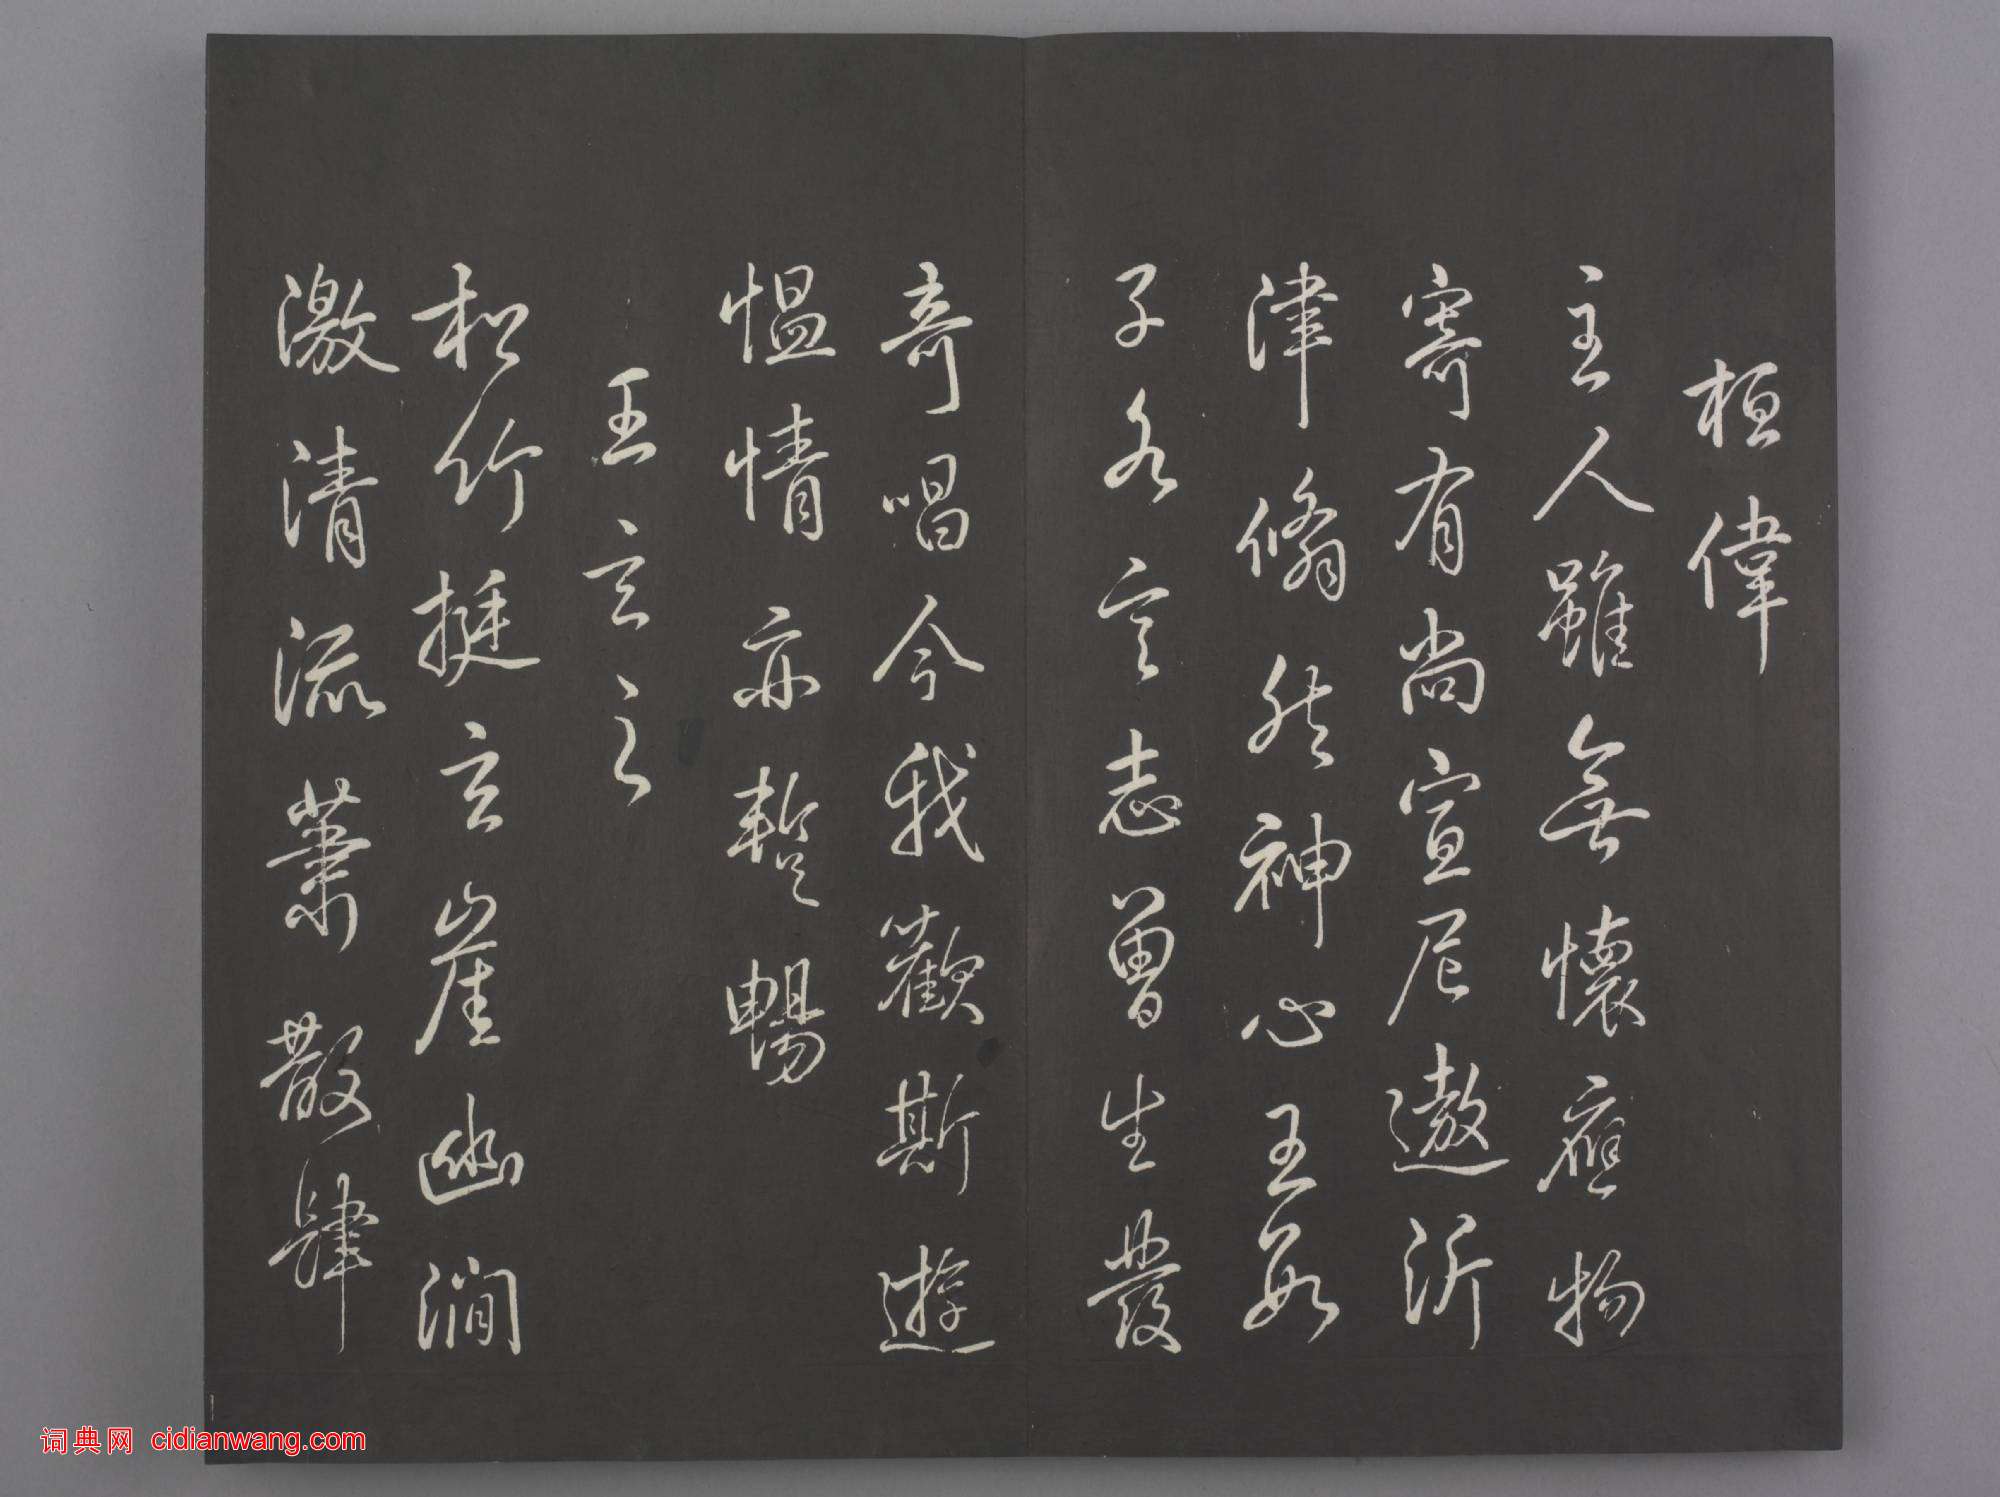 桓偉
主人雖無懷應物
寄有尚宣尼遨沂
津翛然神心王數
子各言志曽生發
奇唱今我歡斯遊
愠情亦蹔暢
王玄之
松竹挺玄崖幽澗
激清流蕭散肆
词典网 cidianwang.com